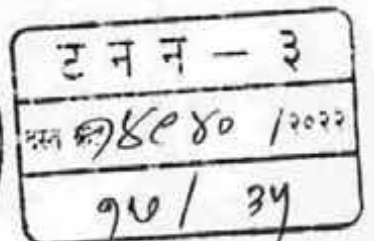 ट न न - ३
दस्त क्र. १४९४० /२०२२
१७ / ३५